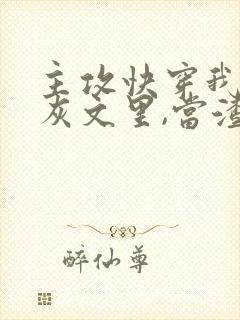 主攻快穿我
灰文里,当渣
醉仙尊